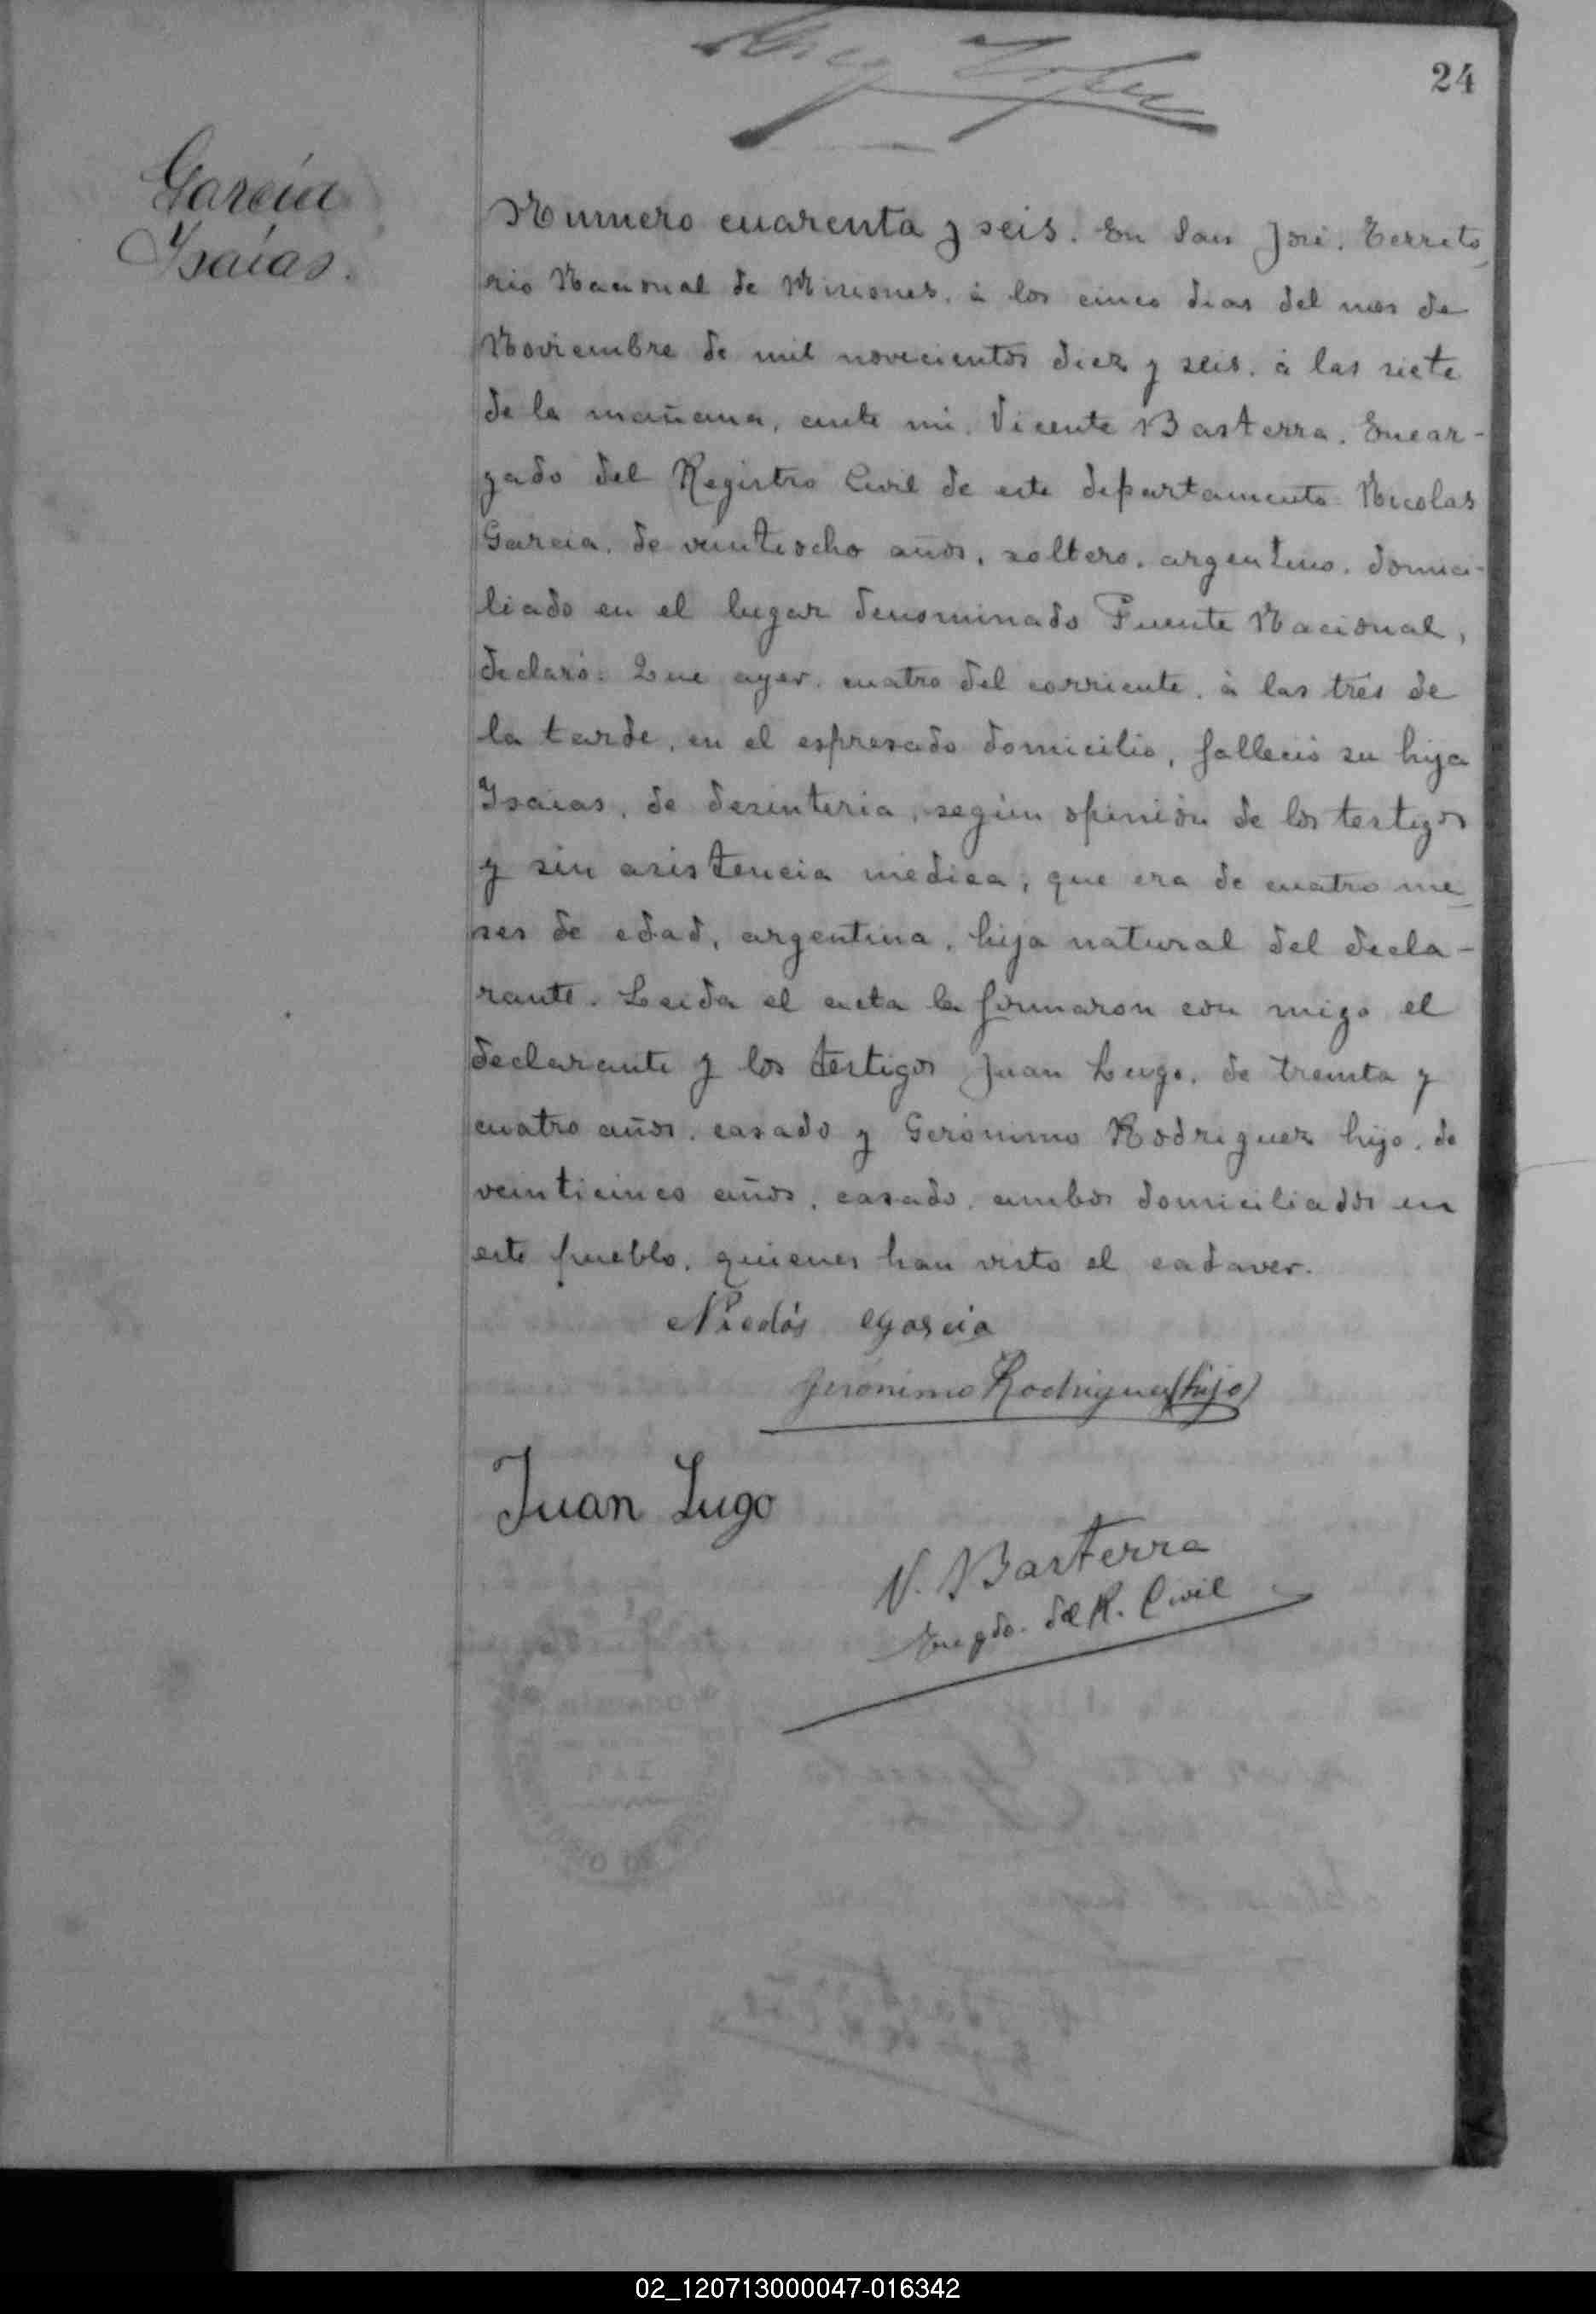 24
García
Ysaías.
Numero cuarenta y seis. En San José. Territo
rio Nacional de Misiones, á los cinco dias del mes de
Noviembre de mil novecientos diez y seis. á las siete
de la mañana, ante mi. Vicente Basterra. Encar-
gado del Registro Civil de este departamento Nicolas
Garcia, de veintiocho años, soltero. argentino. domici-
liado en el lugar denominado Puente Nacional,
declaró: Que ayer. cuatro del corriente, á las tres de
la tarde, en el espresado domicilio, falleció su hija
Ysaias, de desinteria, según opinión de los testigos
y sin asistencia médica, que era de cuatro me
ses de edad, argentina, hija natural del decla-
rante. Leida el acta la firmaron con migo el
declarante y los testigos Juan Lugo, de treinta y
cuatro años. casado y Gerónimo Rodriguez hijo. de
veinticinco años, casado, ambos domiciliados en
este pueblo, quienes han visto el cadaver.
Nicolás Garcia
Jerónimo Rodriguez (hijo)
Juan Lugo
V. Basterra
Encgdo. del R. Civil
02_120713000047-016342